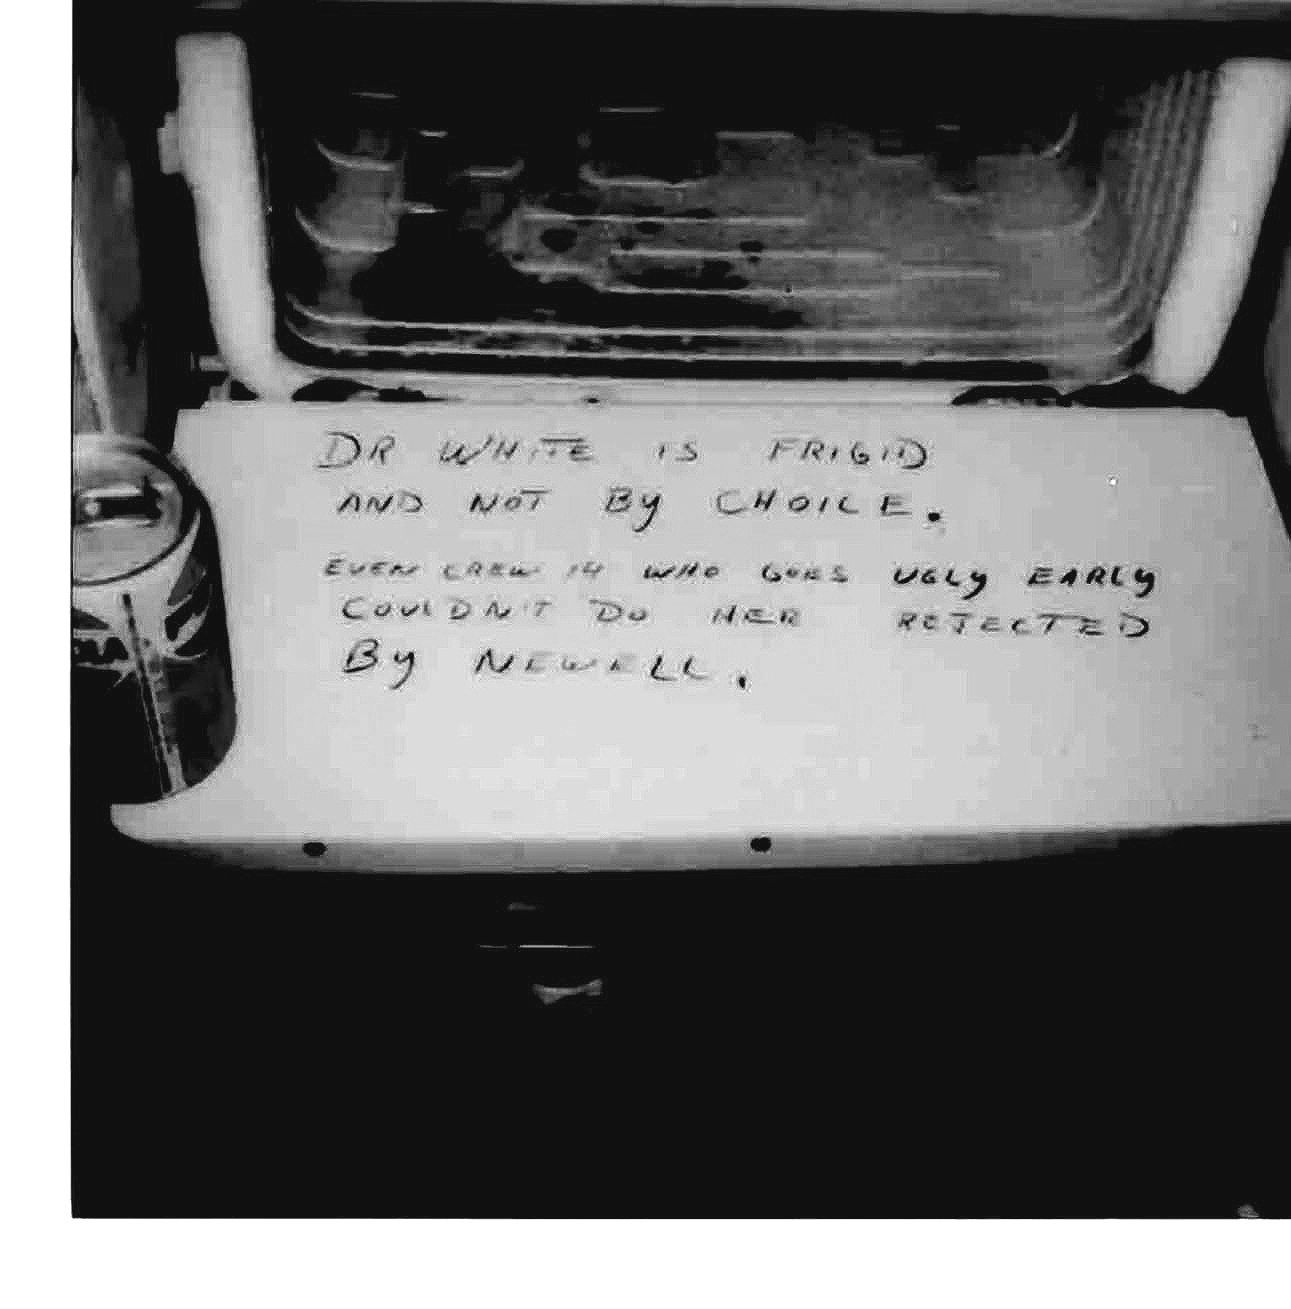 DR WHITE IS FRIGID
AND NOT BY CHOICE.
EVEN CREW 14 WHO GOES UGLY EARLY
COULDN'T DO HER REJECTED
BY NEWELL.